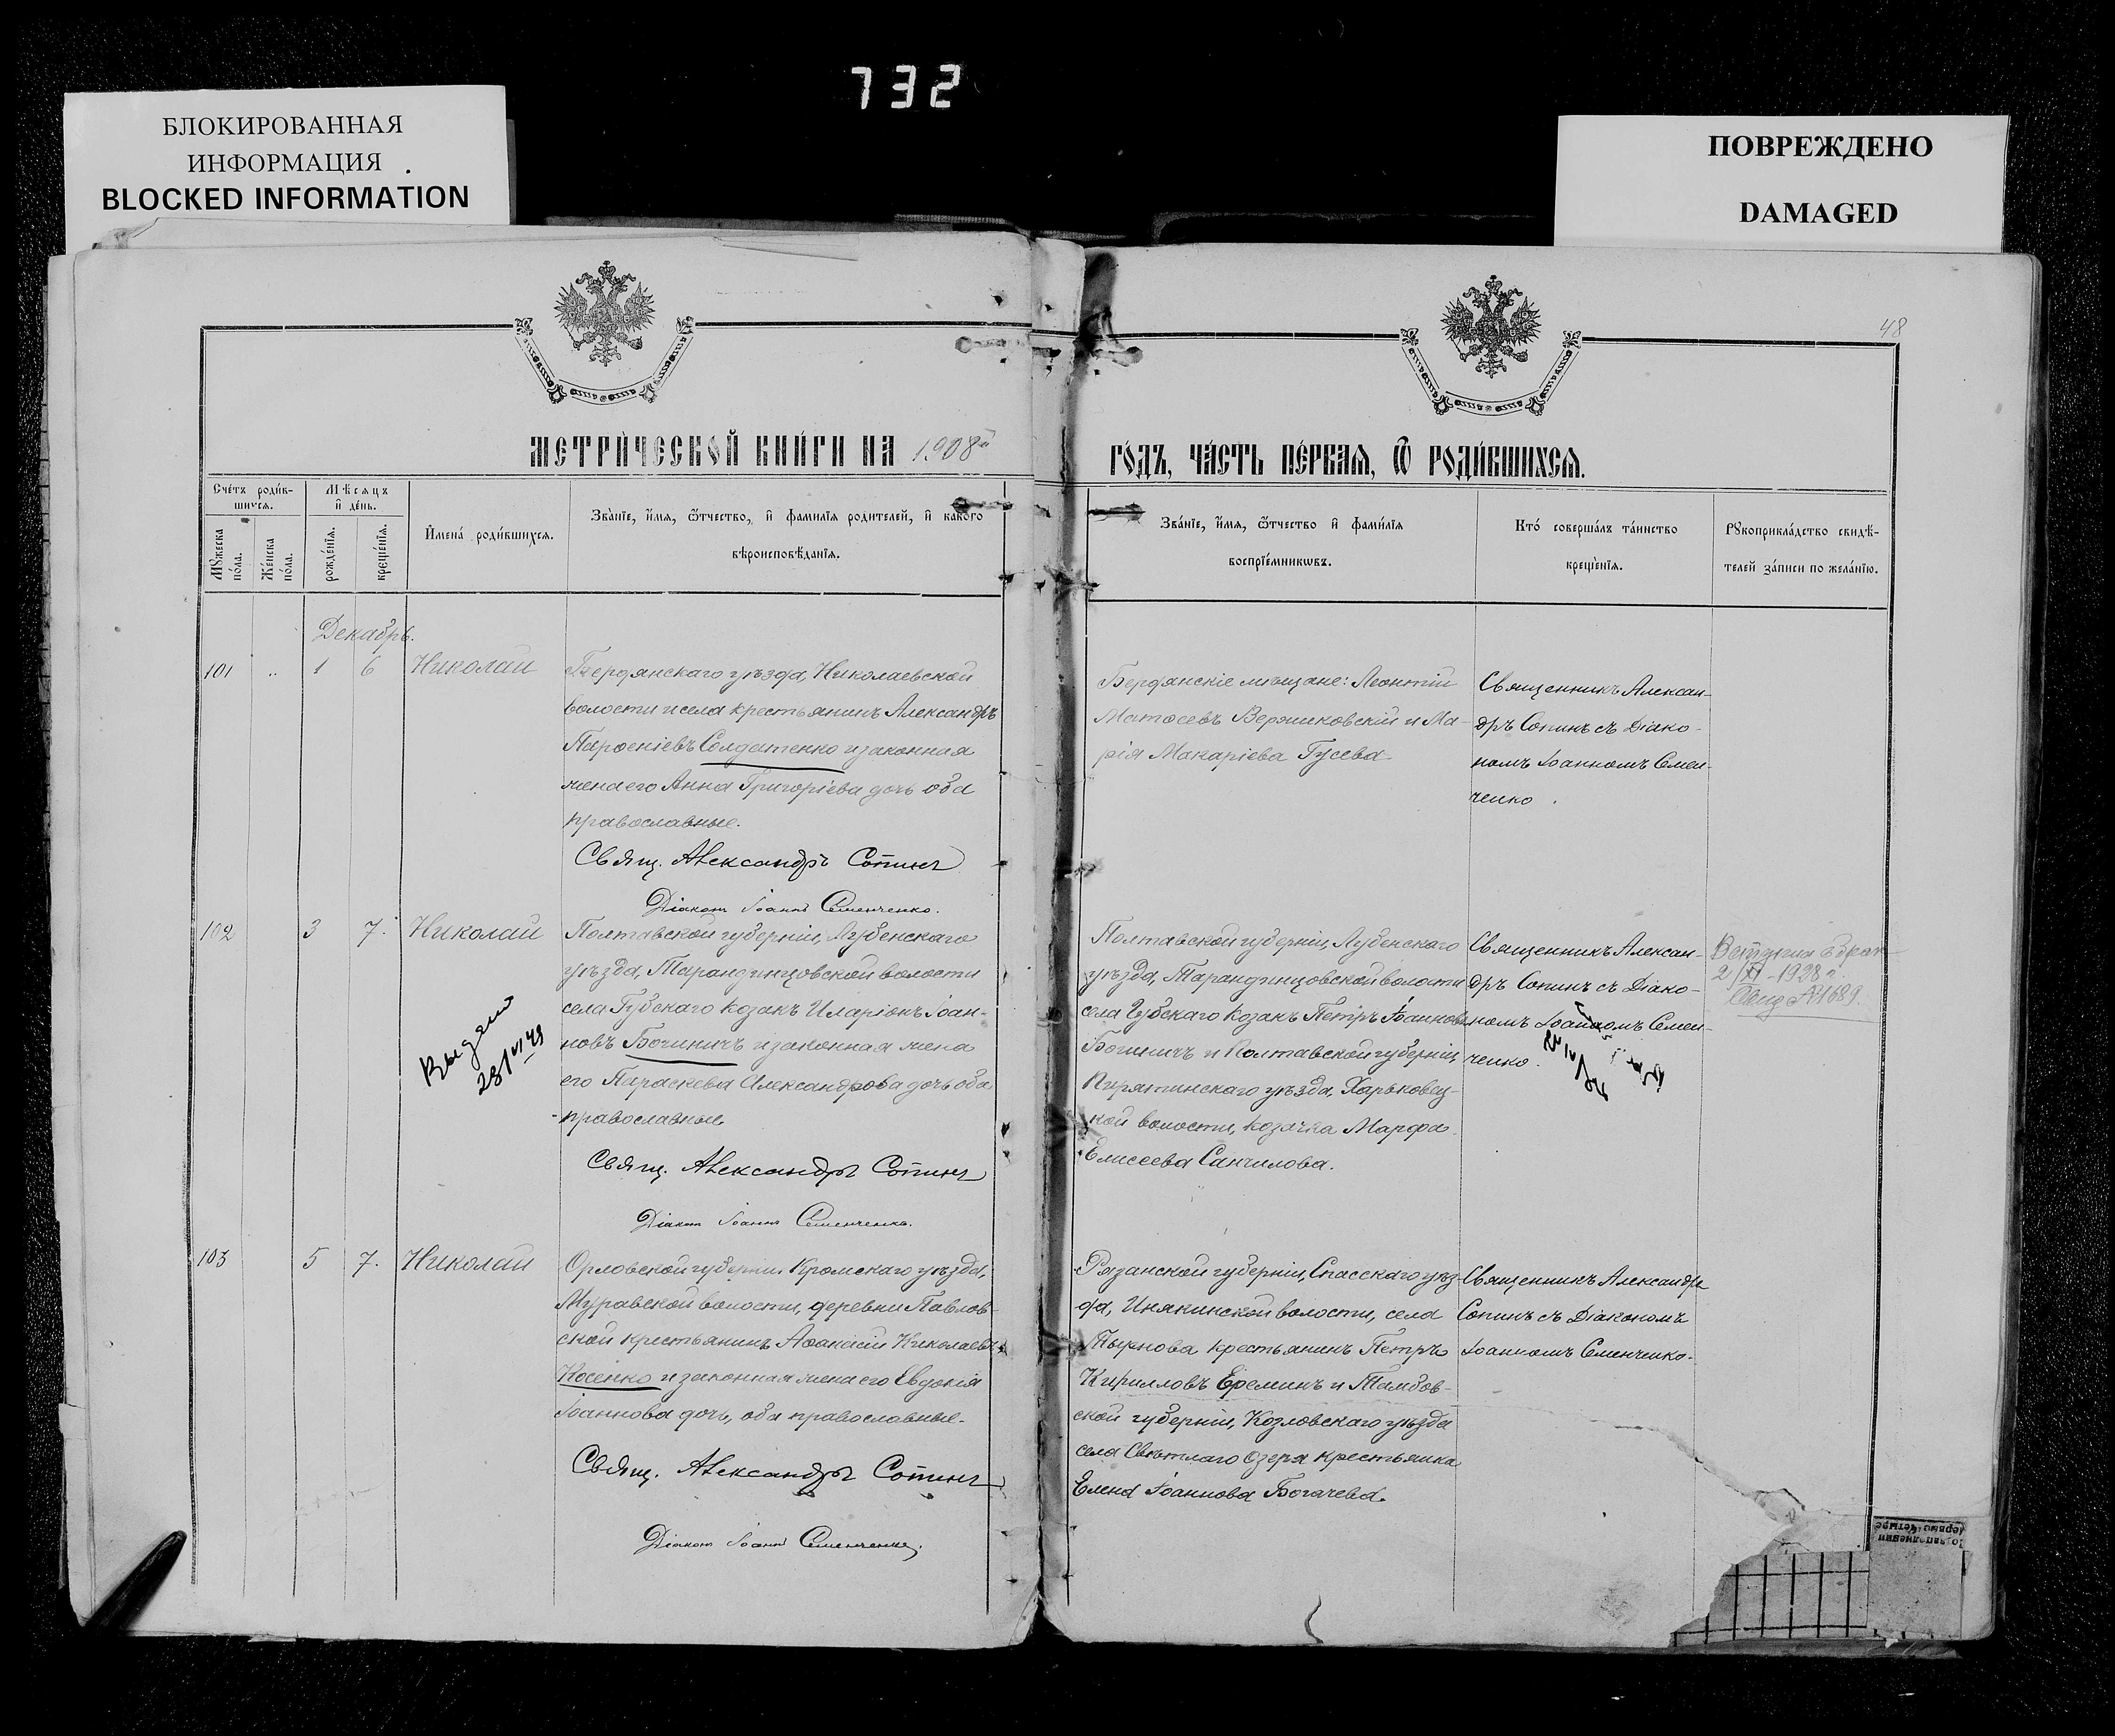 732
БЛОКИРОВАННАЯ
ИНФОРМАЦИЯ
BLOCKED INFORMATION
ПОВРЕЖДЕНО
DAMAGED
48
МЕТРИ́ЧЕСКОЙ КНИ́ГИ НА 1908й
ГО́ДЪ, ЧА́СТЬ ПЕ́РВАѦ, Ѿ РОДИ́ВШИХСѦ.
Сче́тъ роди́в-
шихся.
Мѣсяцъ
и҆ де́нь.
Мꙋжеска
по́ла.
Же́нска
по́ла.
рожде́нїя.
креще́нїя.
И҆мена̀ роди́вшихся.
Зва́нїе, и҆мя, ѻ҆́тчество, и҆ фамилїя родителей, и҆ како́го
вѣроисповѣ́данїя.
Зва́нїе, и҆мя, ѻ҆́тчество и҆ фами́лїя
воспрїе́мникѡвъ.
Кто́ соверша́лъ та́инство
креще́нїя.
Рꙋкоприкла́дство свидѣ́-
телей за́писи по жела́нїю.
Декабрь.
101 " 1 6 Николай
Бердянскаго уѣзда, Николаевской
волости и села крестьянинъ Александръ
Парѳеніевъ Солдатенко и законная
жена его Анна Григоріева дочь оба
православные.
Свящ. Александръ Сопинъ
Діаконъ Іоаннъ Семенченко.
Бердянскіе мѣщане: Леонтій
Матѳеевъ Вержиковскій и Ма-
рія Макаріева Гусева
Священникъ Алексан-
дръ Сопинъ съ Діако-
номъ Іоанномъ Семен-
ченко.
102 3 7. Николай
Полтавской губерніи, Лубенскаго
уѣзда, Тарандинцовской волости
села Губскаго козакъ Иларіонъ Іоан-
новъ Богиничъ и законная жена
его Параскева Александрова дочь оба
православные
Свящ. Александръ Сопинъ
Діаконъ Іоаннъ Семенченко.
Выдан
23/VI 49
Полтавской губерніи, Лубенскаго
уѣзда, Тарандинцовской волости
села Губскаго козакъ Петръ Іоанновъ
Богиничъ и Полтавской губерніи,
Пирятинскаго уѣзда, Харьковец-
кой волости, козачка Марѳа
Елисеева Санжилова.
Священникъ Алексан-
дръ Сопинъ съ Діако-
номъ Іоанномъ Семен-
ченко.
Вступил в брак
2/XI-1928 г.
1689.
103 5 7. Николай
Орловской губерніи Кромскаго уѣзда,
Муравской волости, деревни Павлов-
ской крестьянинъ Аѳанасій Николаевъ
Косенко и законная жена его Евдокія
Іоаннова дочь, оба православные.
Свящ. Александръ Сопинъ
Діаконъ Іоаннъ Семенченко.
Рязанской губерніи, Спасскаго уѣз-
да, Инякинской волости, села
Тырнова крестьянинъ Петръ
Кирилловъ Ереминъ и Тамбов-
ской губерніи, Козловскаго уѣзда
села Свѣтлаго Озера крестьянка
Елена Іоаннова Богачева.
Священникъ Александръ
Сопинъ съ Діакономъ
Іоанномъ Семенченко.